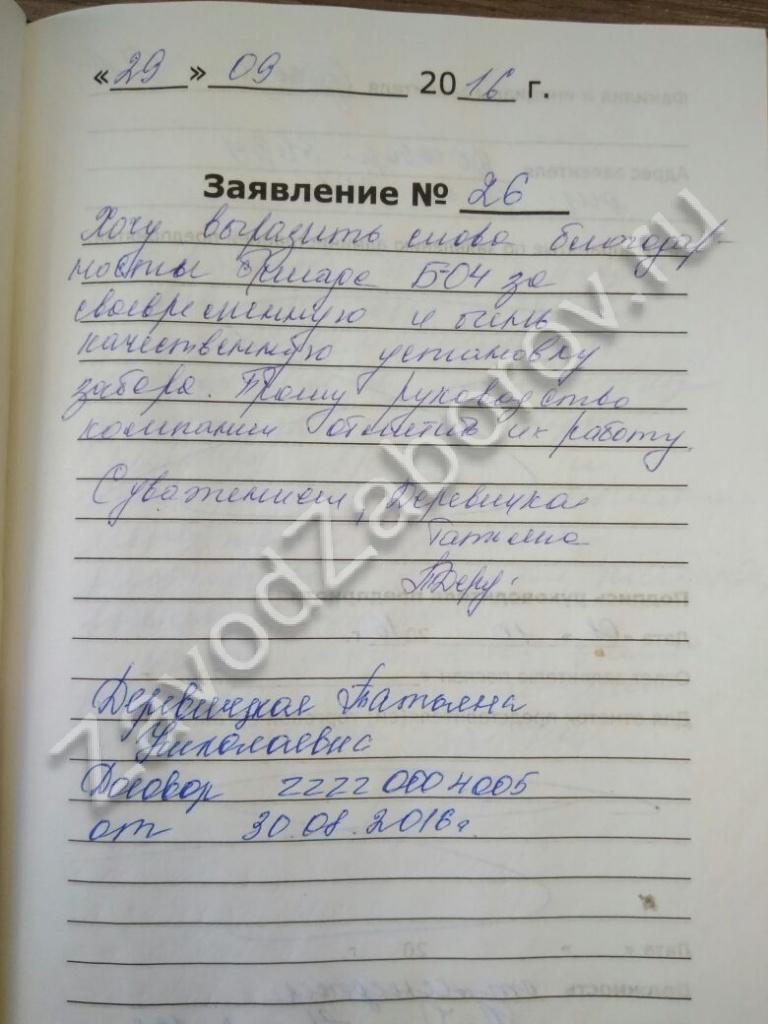 « 29 » 09 2016 г.
Заявление № 26
Хочу выразить слова благодар-
ности Б-04 за
своевременную и очень
качественную установку
забора. Прошу руководство
компании отметить их работу.
С уважением, Деревицкая
Татьяна
Деревицкая Татьяна
Николаевна
Договор 2222 000 4005
от 30.08.2016г.
ZavodZaborov.ru